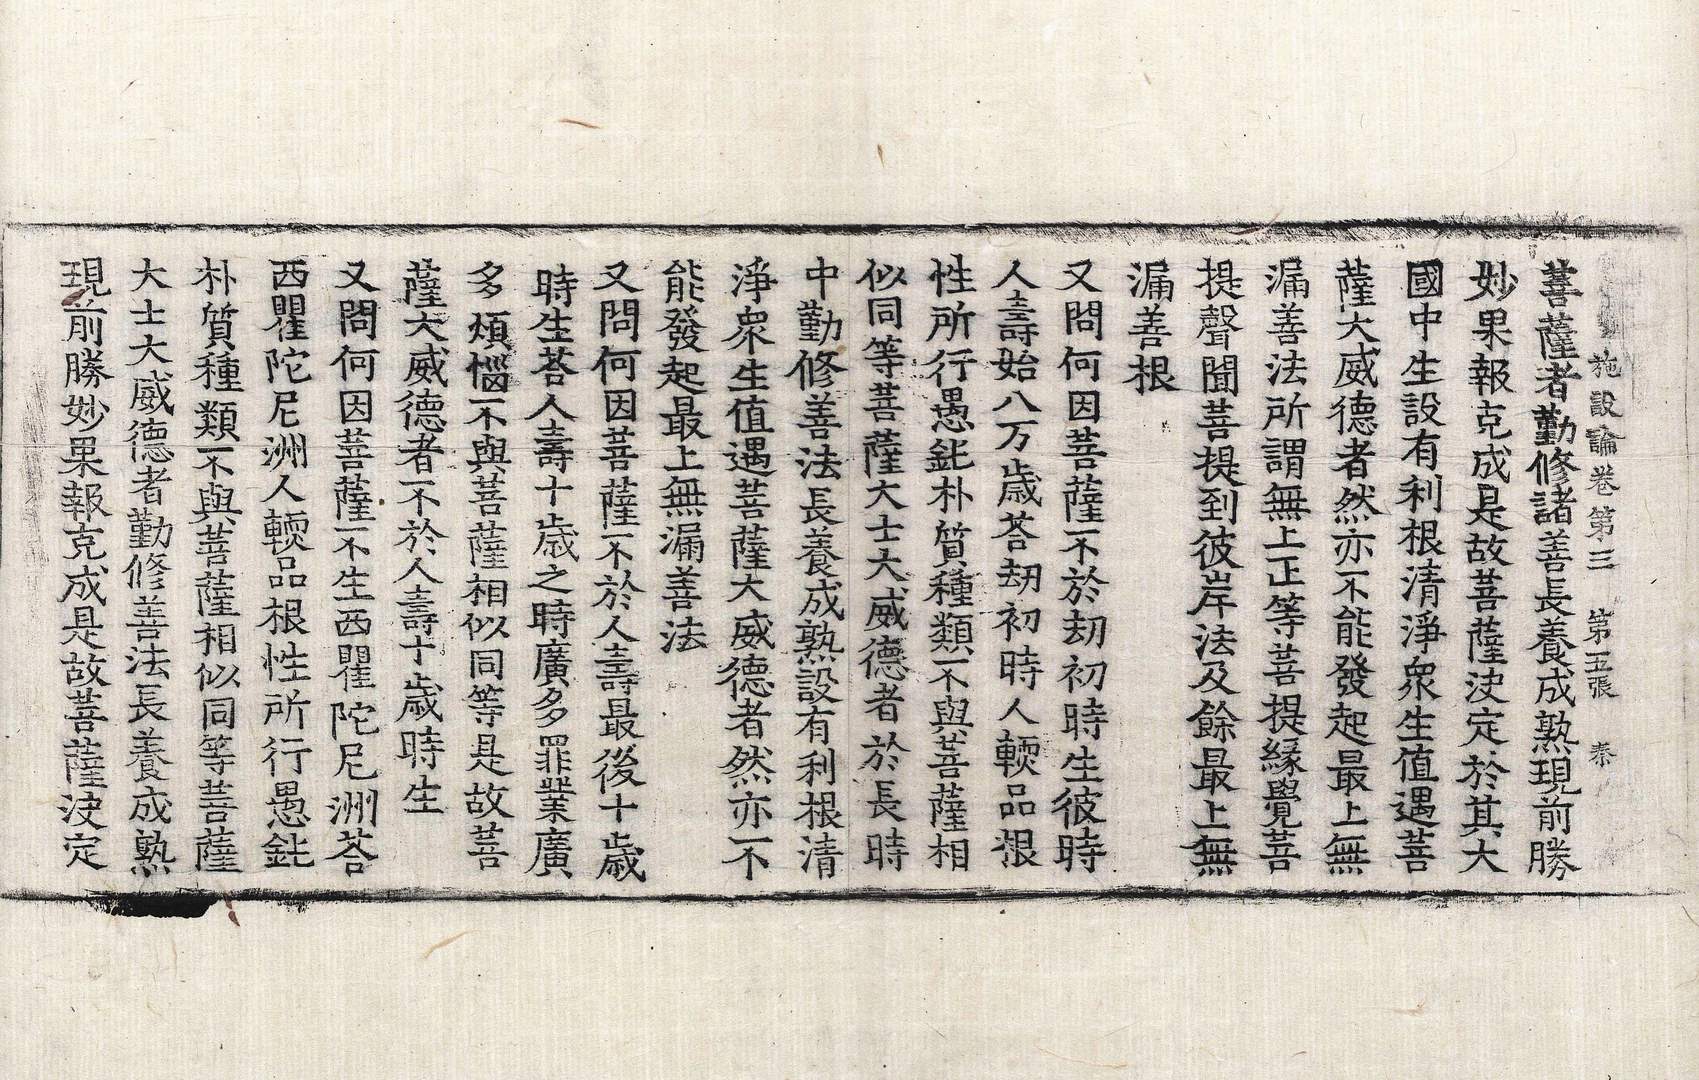 施設論卷第三 第五張 秦
菩薩者勤修諸善長養成熟現前勝
妙果報克成是故菩薩決定於其大
國中生設有利根清淨衆生值遇菩
薩大威德者然亦不能發起最上無
漏善法所謂無上正等菩提緣覺菩
提聲聞菩提到彼岸法及餘最上無
漏善根
又問何因菩薩不於劫初時生彼時
人壽始八万歲荅劫初時人輭品根
性所行愚鈍朴質種類不與菩薩相
似同等菩薩大士大威德者於長時
中勤修善法長養成熟設有利根清
淨衆生值遇菩薩大威德者然亦不
能發起最上無漏善法
又問何因菩薩不於人壽最後十歲
時生荅人壽十歲之時廣多罪業廣
多煩惱不與菩薩相似同等是故菩
薩大威德者不於人壽十歲時生
又問何因菩薩不生西瞿陀尼洲荅
西瞿陀尼洲人輭品根性所行愚鈍
朴質種類不與菩薩相似同等菩薩
大士大威德者勤修善法長養成熟
現前勝妙果報克成是故菩薩決定